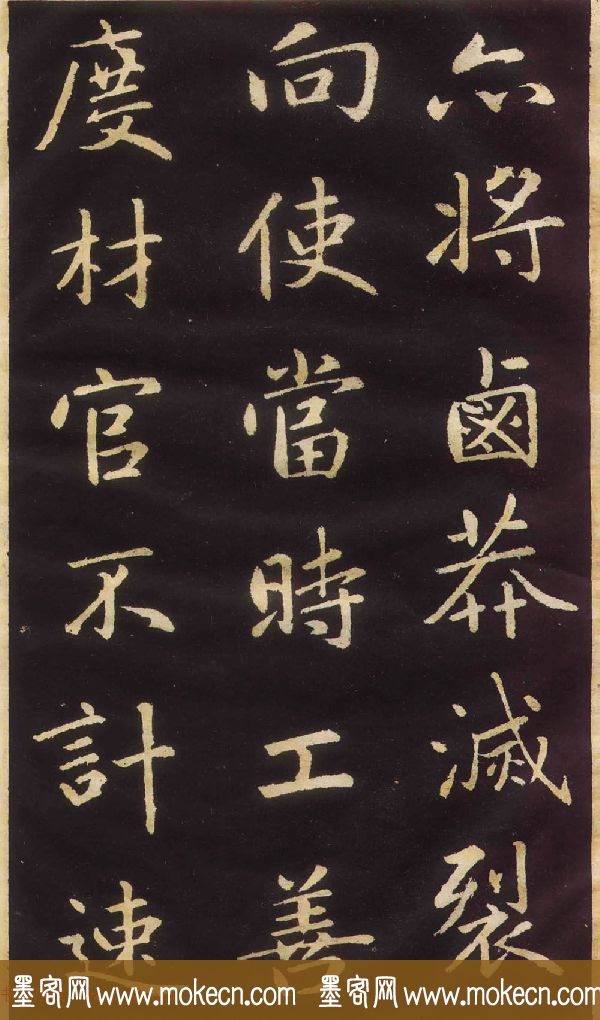 亦將鹵莽滅裂
向使當時工善
度材官不計速
墨客网 www.mokecn.com 墨客网 www.mokecn.com